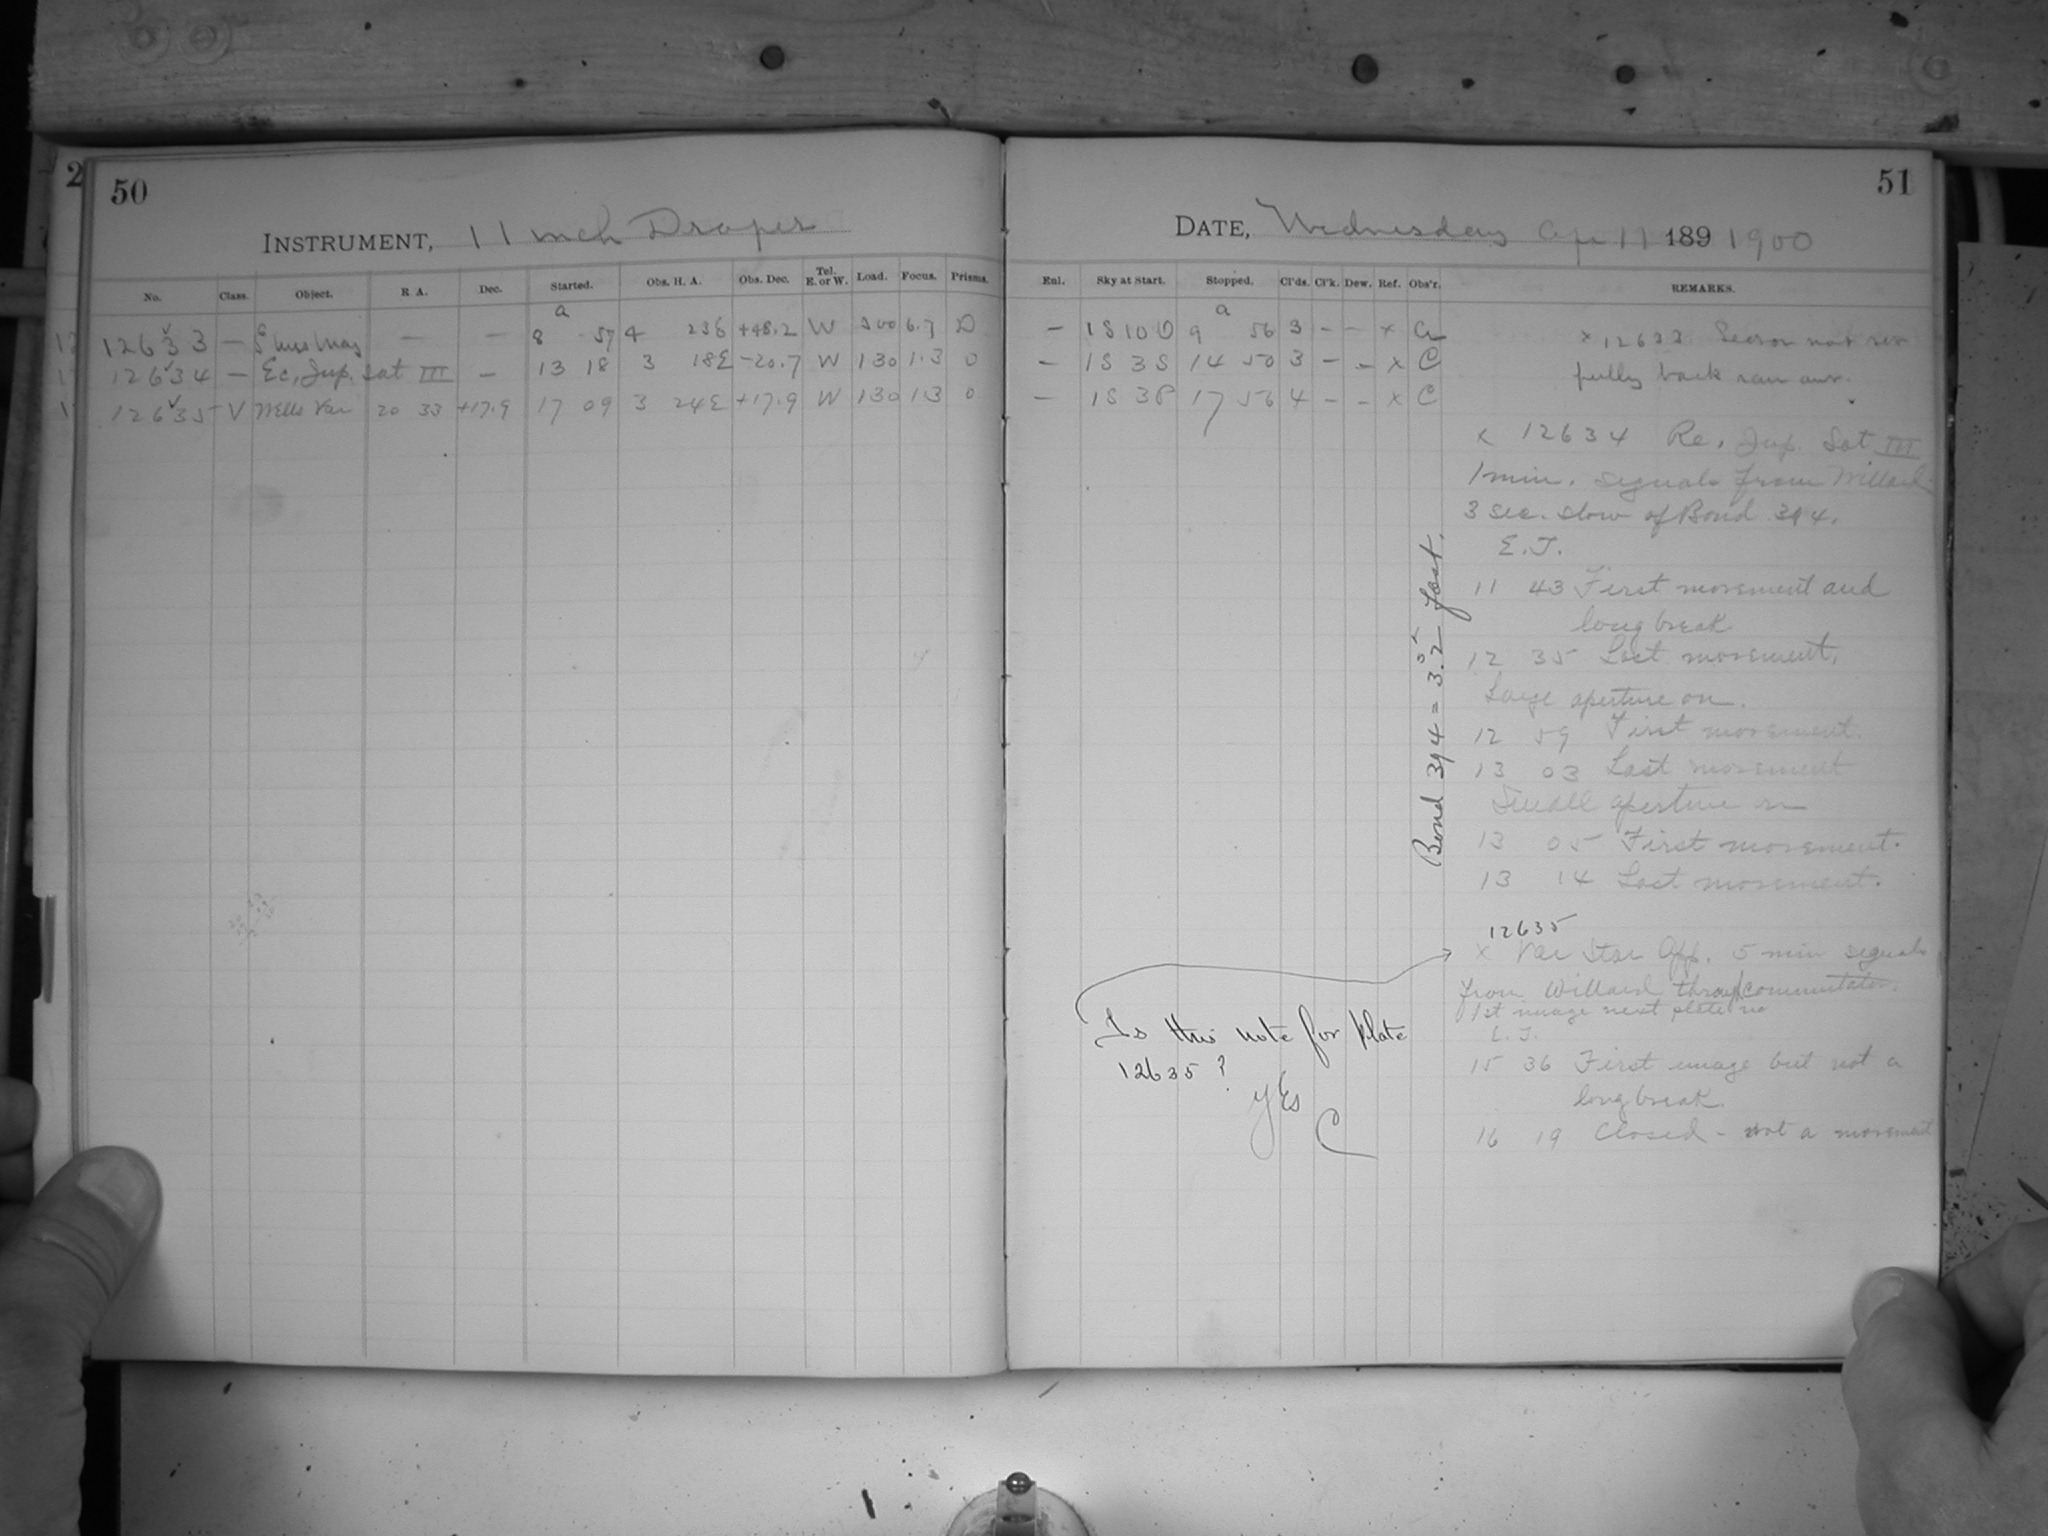 2
50
INSTRUMENT, 11 inch Draper
No. Class. Object. R A. Dec. Started. Obs. H. A. Obs. Dec. Tel. E. or W. Load. Focus. Prisms.
a
12633 — — — 8 57 4 23E +48.2 W 200 6.7 D
12634 — Ec, Jup. Sat III — 13 18 3 18E -20.7 W 130 1.3 0
12635 V Wells Var 20 33 +17.9 17 09 3 24E +17.9 W 130 1.3 0
51
DATE, Wednesday Ap 11 189 1900
Enl. Sky at Start. Stopped. Cl'ds. Cl'k. Dew. Ref. Obs'r. REMARKS.
a
— 1S 10 0 9 56 3 - - x
— 1S 3S 14 50 3 - - x C
— 1S 3P 17 56 4 - - x C
x 12633 not
fully back ran
x 12634 Re, Jup. Sat III
1 min. signals from Willard
3 sec. slow of Bond 394.
E.T.
11 43 First movement and
long break
12 35 Last movement,
Large aperture on.
12 59 First movement.
13 03 Last movement
Small aperture on
13 05 First movement.
13 14 Last movement.
Bond 394 = 3.2 fast.
12635
x Var Star App. 5 min signals
from Willard through commutator.
1st image next plate no
15 36 First image but not a
long break
16 19 Closed - not a movement
Is this note for plate
12635?
yes
C